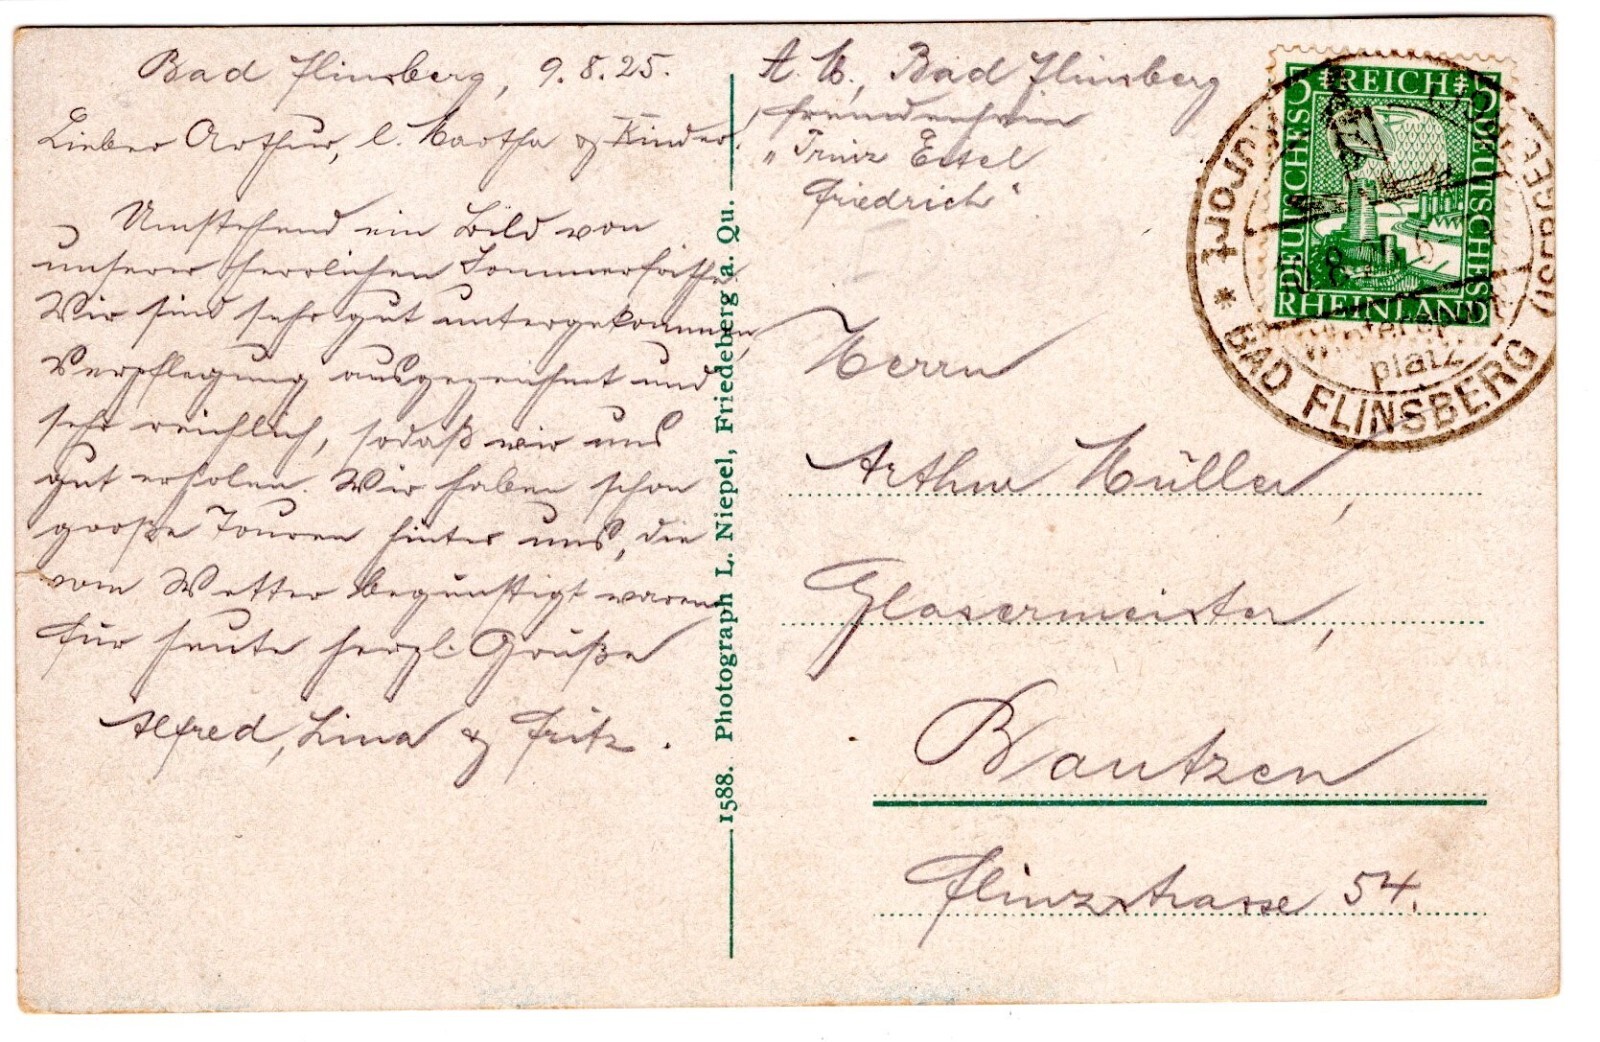 Bad Flinsberg, 9.8.25.
Lieber Arthur, l. Martha & Kinder!
Umstehend ein Bild von
unserer herrlichen Sommerfrische.
Wir sind sehr gut untergekommen,
Verpflegung ausgezeichnet und
sehr reichlich, sodaß wir uns
gut erholen. Wir haben schon
große Touren hinter uns, die
vom Wetter begünstigt waren.
Für heute herzl. Grüße
Alfred, Lina & Fritz.
1588. Photograph L. Niepel, Friedeberg a. Qu.
A. M., Bad Flinsberg
Fremdenheim
„Prinz Eitel
Friedrich“
5 REICH 5
DEUTSCHES
DEUTSCHES
RHEINLAND
Kurort * BAD FLINSBERG (ISERGEB.)
Wintersport-
platz
Herrn
Arthur Müller,
Glasermeister,
Bautzen
Flinzstrasse 54.